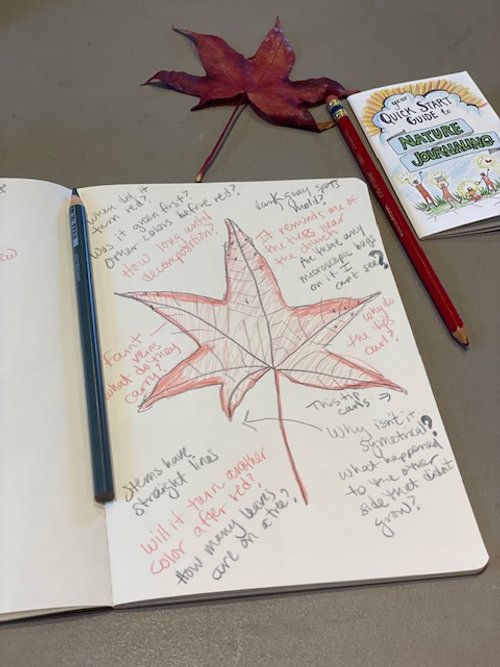 your
QUICK START
GUIDE to
NATURE
JOURNALING
When did it
turn red?
Was it green first?
Other colors before red?
How long until
decomposition?
dark gray spots
mold?
It reminds me of
the trees near
the church
Are there any
microscopic bugs
on it I
can't see?
Faint
veins
what do they
carry?
Why do
the tips
curl?
This tip
curls →
Why isn't it
symetrical?
what happened
to the other
side that didn't
grow?
Stems have
straight lines
Will it turn another
color after red?
How many leaves
are on a tree?